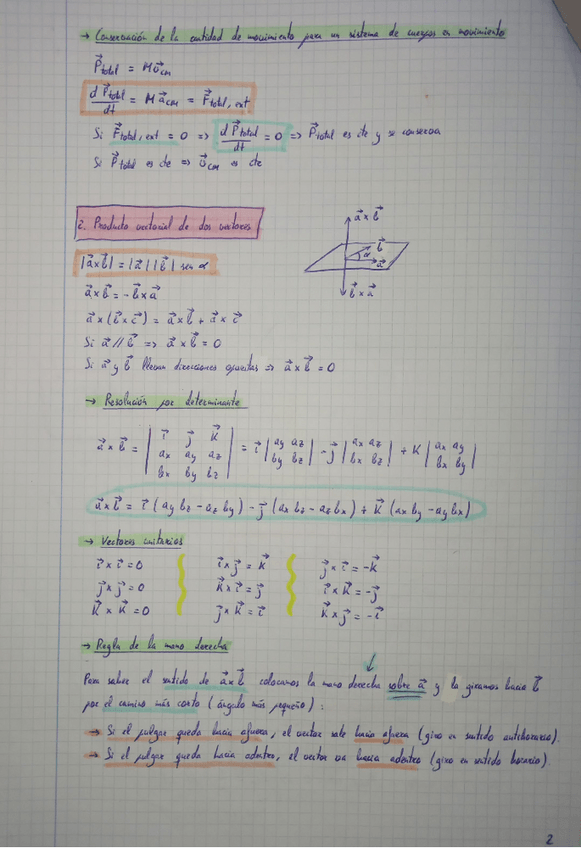 → Conservación de la cantidad de movimiento para un sistema de cuerpos en movimiento
P⃗total = M v⃗CM
d P⃗total / dt = M a⃗CM = F⃗total, ext
Si F⃗total, ext = 0 => d P⃗total / dt = 0 => P⃗total es cte y se conserva
Si P⃗total es cte => v⃗CM es cte
2. Producto vectorial de dos vectores
a⃗ x b⃗
b⃗
α
a⃗
b⃗ x a⃗
|a⃗ x b⃗| = |a⃗| |b⃗| sen α
a⃗ x b⃗ = - b⃗ x a⃗
a⃗ x (b⃗ x c⃗) = a⃗ x b⃗ + a⃗ x c⃗
Si a⃗ // b⃗ => a⃗ x b⃗ = 0
Si a⃗ y b⃗ llevan direcciones opuestas => a⃗ x b⃗ = 0
→ Resolución por determinante
a⃗ x b⃗ = | i⃗ j⃗ k⃗ ; ax ay az ; bx by bz | = i⃗ | ay az ; by bz | - j⃗ | ax az ; bx bz | + k | ax ay ; bx by |
a⃗ x b⃗ = i⃗ (ay bz - az by) - j⃗ (ax bz - az bx) + k⃗ (ax by - ay bx)
→ Vectores unitarios
i⃗ x i⃗ = 0 i⃗ x j⃗ = k⃗ j⃗ x i⃗ = -k⃗
j⃗ x j⃗ = 0 k⃗ x i⃗ = j⃗ i⃗ x k⃗ = -j⃗
k⃗ x k⃗ = 0 j⃗ x k⃗ = i⃗ k⃗ x j⃗ = -i⃗
→ Regla de la mano derecha
Para saber el sentido de a⃗ x b⃗ colocamos la mano derecha sobre a⃗ y la giramos hacia b⃗
por el camino más corto (ángulo más pequeño):
→ Si el pulgar queda hacia afuera, el vector sale hacia afuera (giro en sentido antihorario).
→ Si el pulgar queda hacia adentro, el vector va hacia adentro (giro en sentido horario).
2